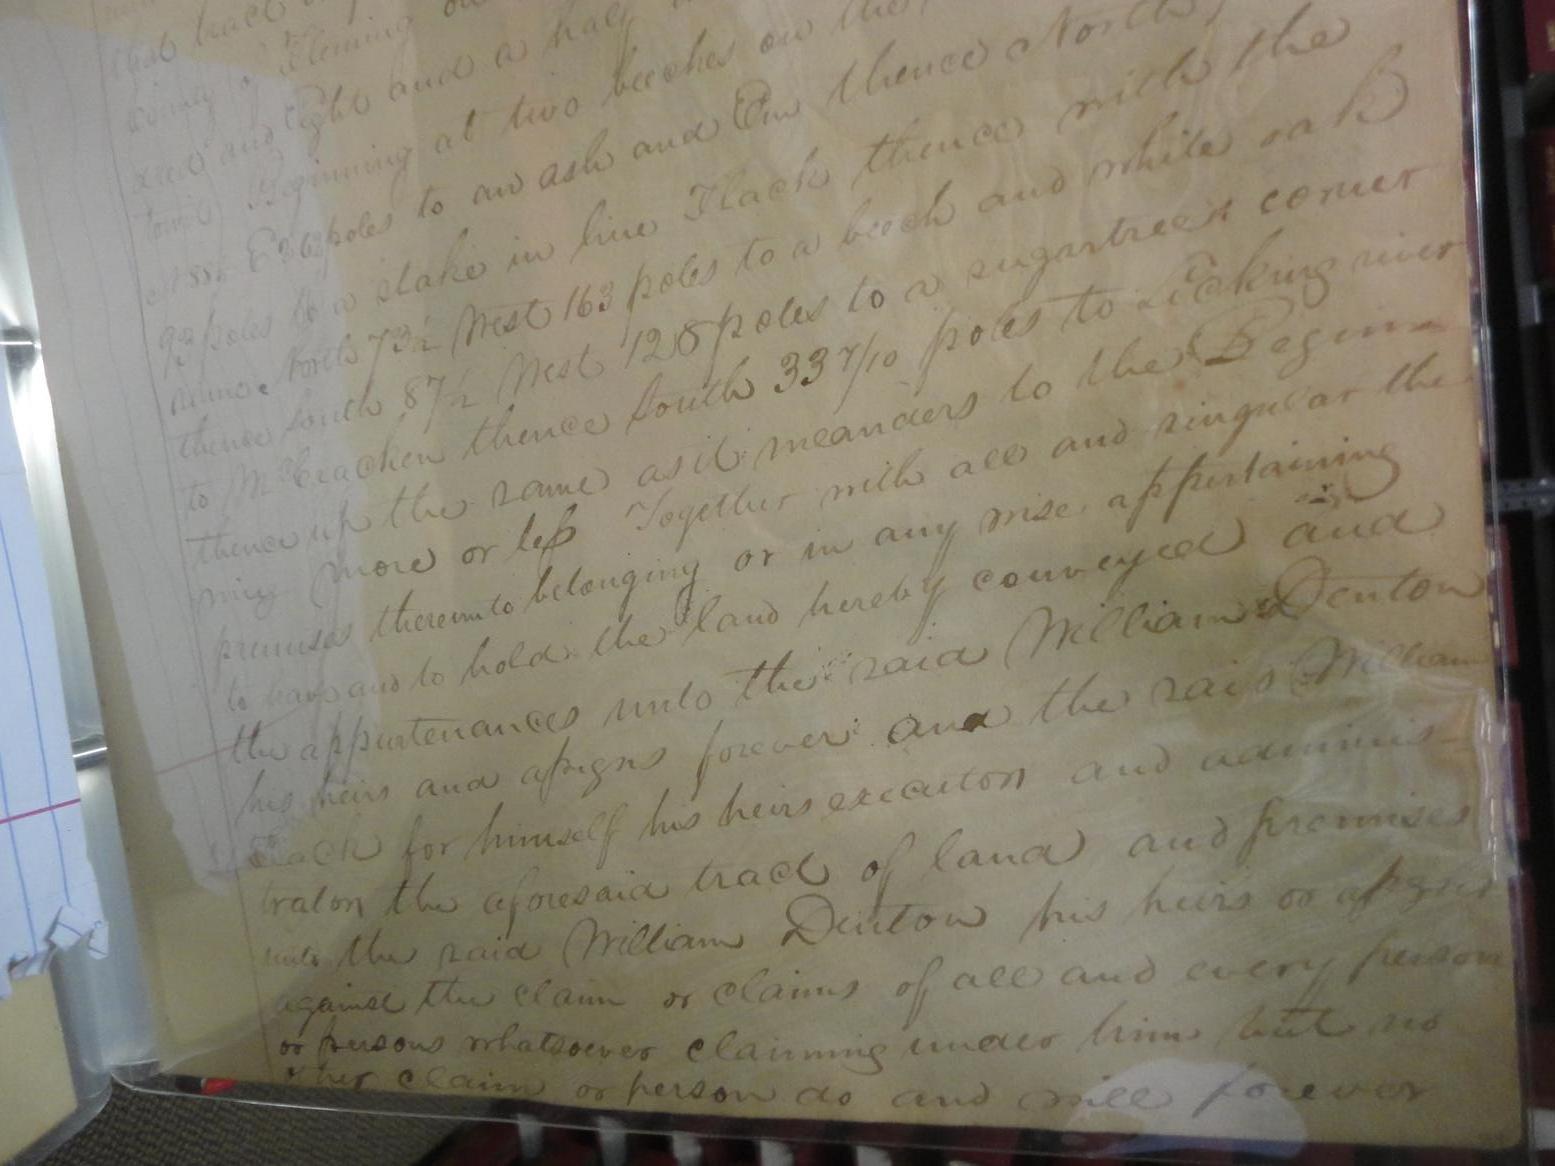 that tract
county of Fleming on
and Eight and a half
Beginning at two beeches on the
E 363 poles to an ash and Elm thence North
93 poles to a stake in line Flack thence with the
same North 73½ West 163 poles to a beech and white oak
thence South 87½ West 128 poles to a sugartrees corner
to McCracken thence South 33 7/10 poles to Licking river
thence up the same as it meanders to the Begin
ning more or less Together with all and singular the
premises thereunto belonging or in any wise appertaining
to have and to hold the land hereby conveyed and
the appurtenances unto the said William Denton
his heirs and assigns forever and the said William
Flack for himself his heirs executors and adminis-
trators the aforesaid tract of land and premises
unto the said William Denton his heirs or assigns
against the claim or claims of all and every person
or persons whatsoever claiming under him but no
other claim or person do and will forever